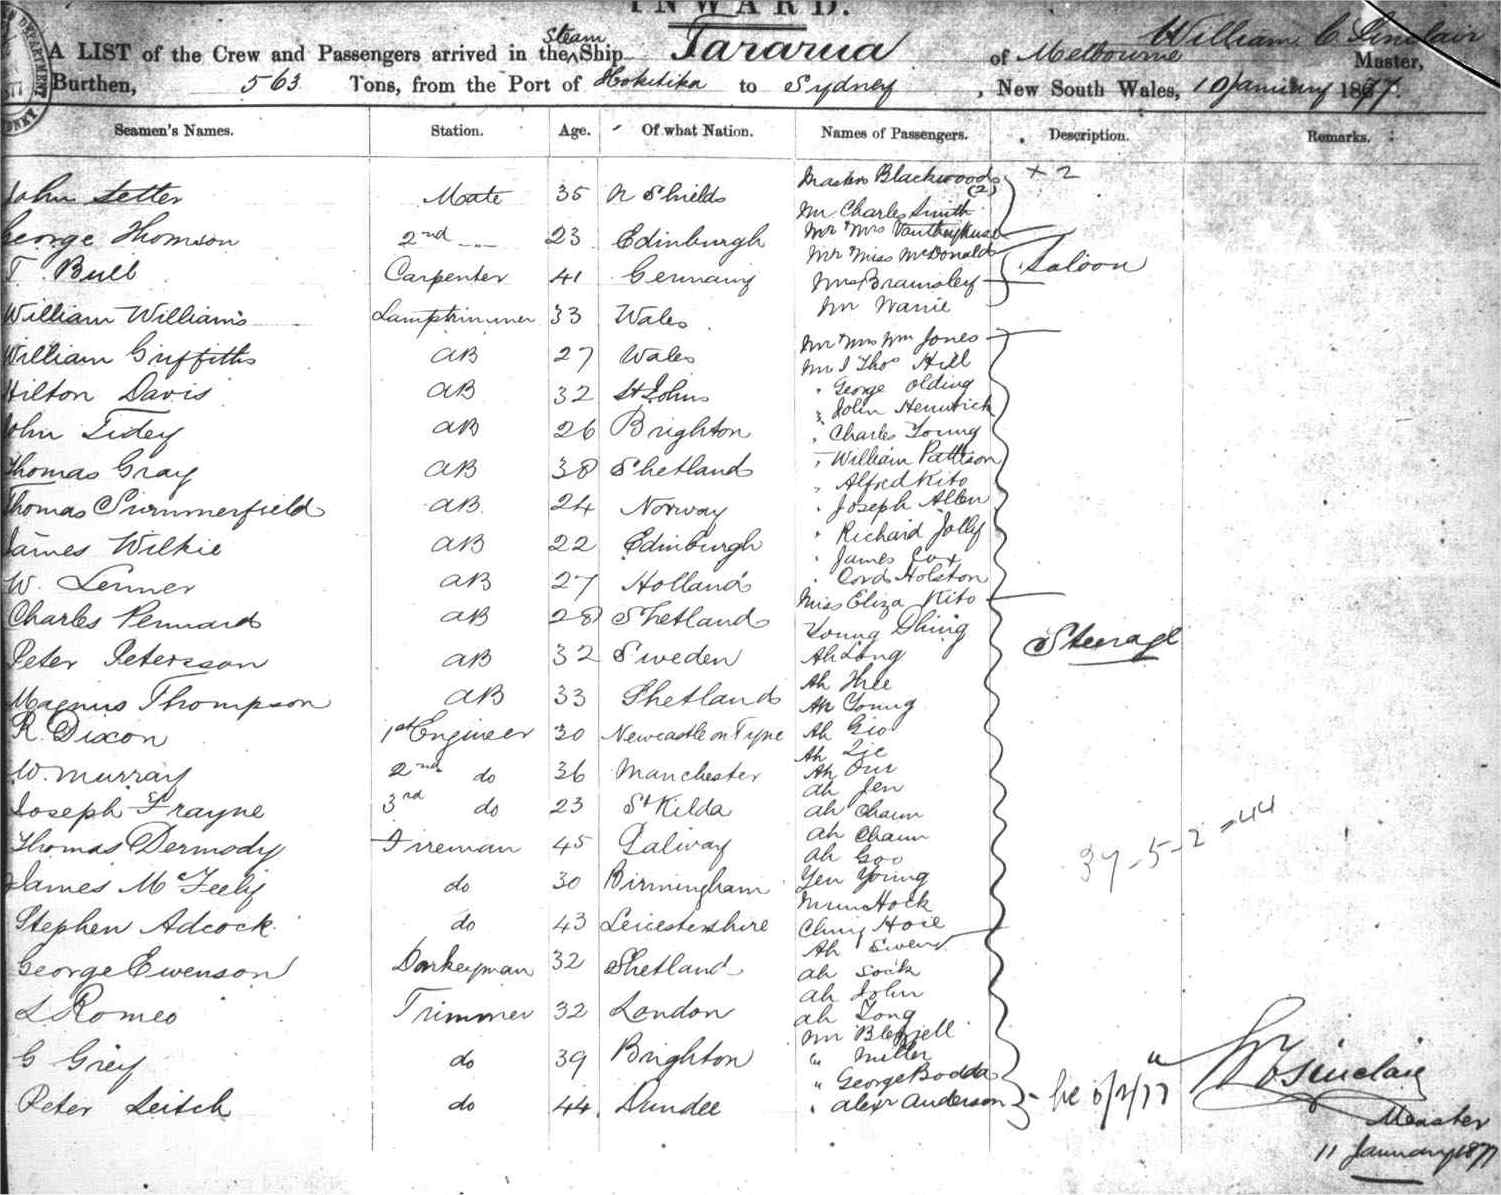 INWARD.
A LIST of the Crew and Passengers arrived in the Steam Ship Tararua of Melbourne William C Sinclair Master,
Burthen, 563 Tons, from the Port of Hokitika to Sydney, New South Wales, 10 January 1877.
Seamen's Names. Station. Age. Of what Nation. Names of Passengers. Description. Remarks.
John Setter Mate 35 N Shields
George Thomson 2nd 23 Edinburgh
T. Bull Carpenter 41 Germany
William Williams Lamptrimmer 33 Wales
William Griffiths AB 27 Wales
Hilton Davis AB 32 St Johns
John Tidey AB 26 Brighton
Thomas Gray AB 38 Shetland
Thomas Summerfield AB 24 Norway
James Wilkie AB 22 Edinburgh
W. Lenner AB 27 Holland
Charles Pennard AB 28 Shetland
Peter Petersson AB 32 Sweden
Magnus Thompson AB 33 Shetland
R. Dixon 1st Engineer 30 Newcastle on Tyne
W. Murray 2nd do 36 Manchester
Joseph Frayne 3rd do 23 St Kilda
Thomas Dermody Fireman 45 Galway
James McFeely do 30 Birmingham
Stephen Adcock do 43 Leicestershire
George Ewenson Donkeyman 32 Shetland
L Romeo Trimmer 32 London
G Grey do 39 Brighton
Peter Leitch do 44 Dundee
Masters Blackwood (2)
Mr Charles Smith
Mr & Mrs
Mr & Miss McDonald
Mrs Bramsley
Mr Warie
Mr & Mrs Wm Jones
Mr J Thos Hill
" George Olding
" John Hennrick
" Charles Young
" William Pattison
" Alfred Kito
" Joseph Allen
" Richard Jolly
" James Cox
" Cord Holston
Miss Eliza Kito
Young Ghing
Ah Long
Ah Hee
Ah Young
Ah Gio
Ah Lie
Ah Our
Ah Jen
Ah Chaun
Ah Chaun
Ah Goo
Yen Young
Mun Hock
Ching Hoie
Ah Swend
Ah Sock
Ah John
Ah Tong
Mr
" Miller
" George Bodda
" Alexr Anderson
+ 2
Saloon
Steerage
39-5-2=44
W C Sinclair
Master
11 January 1877